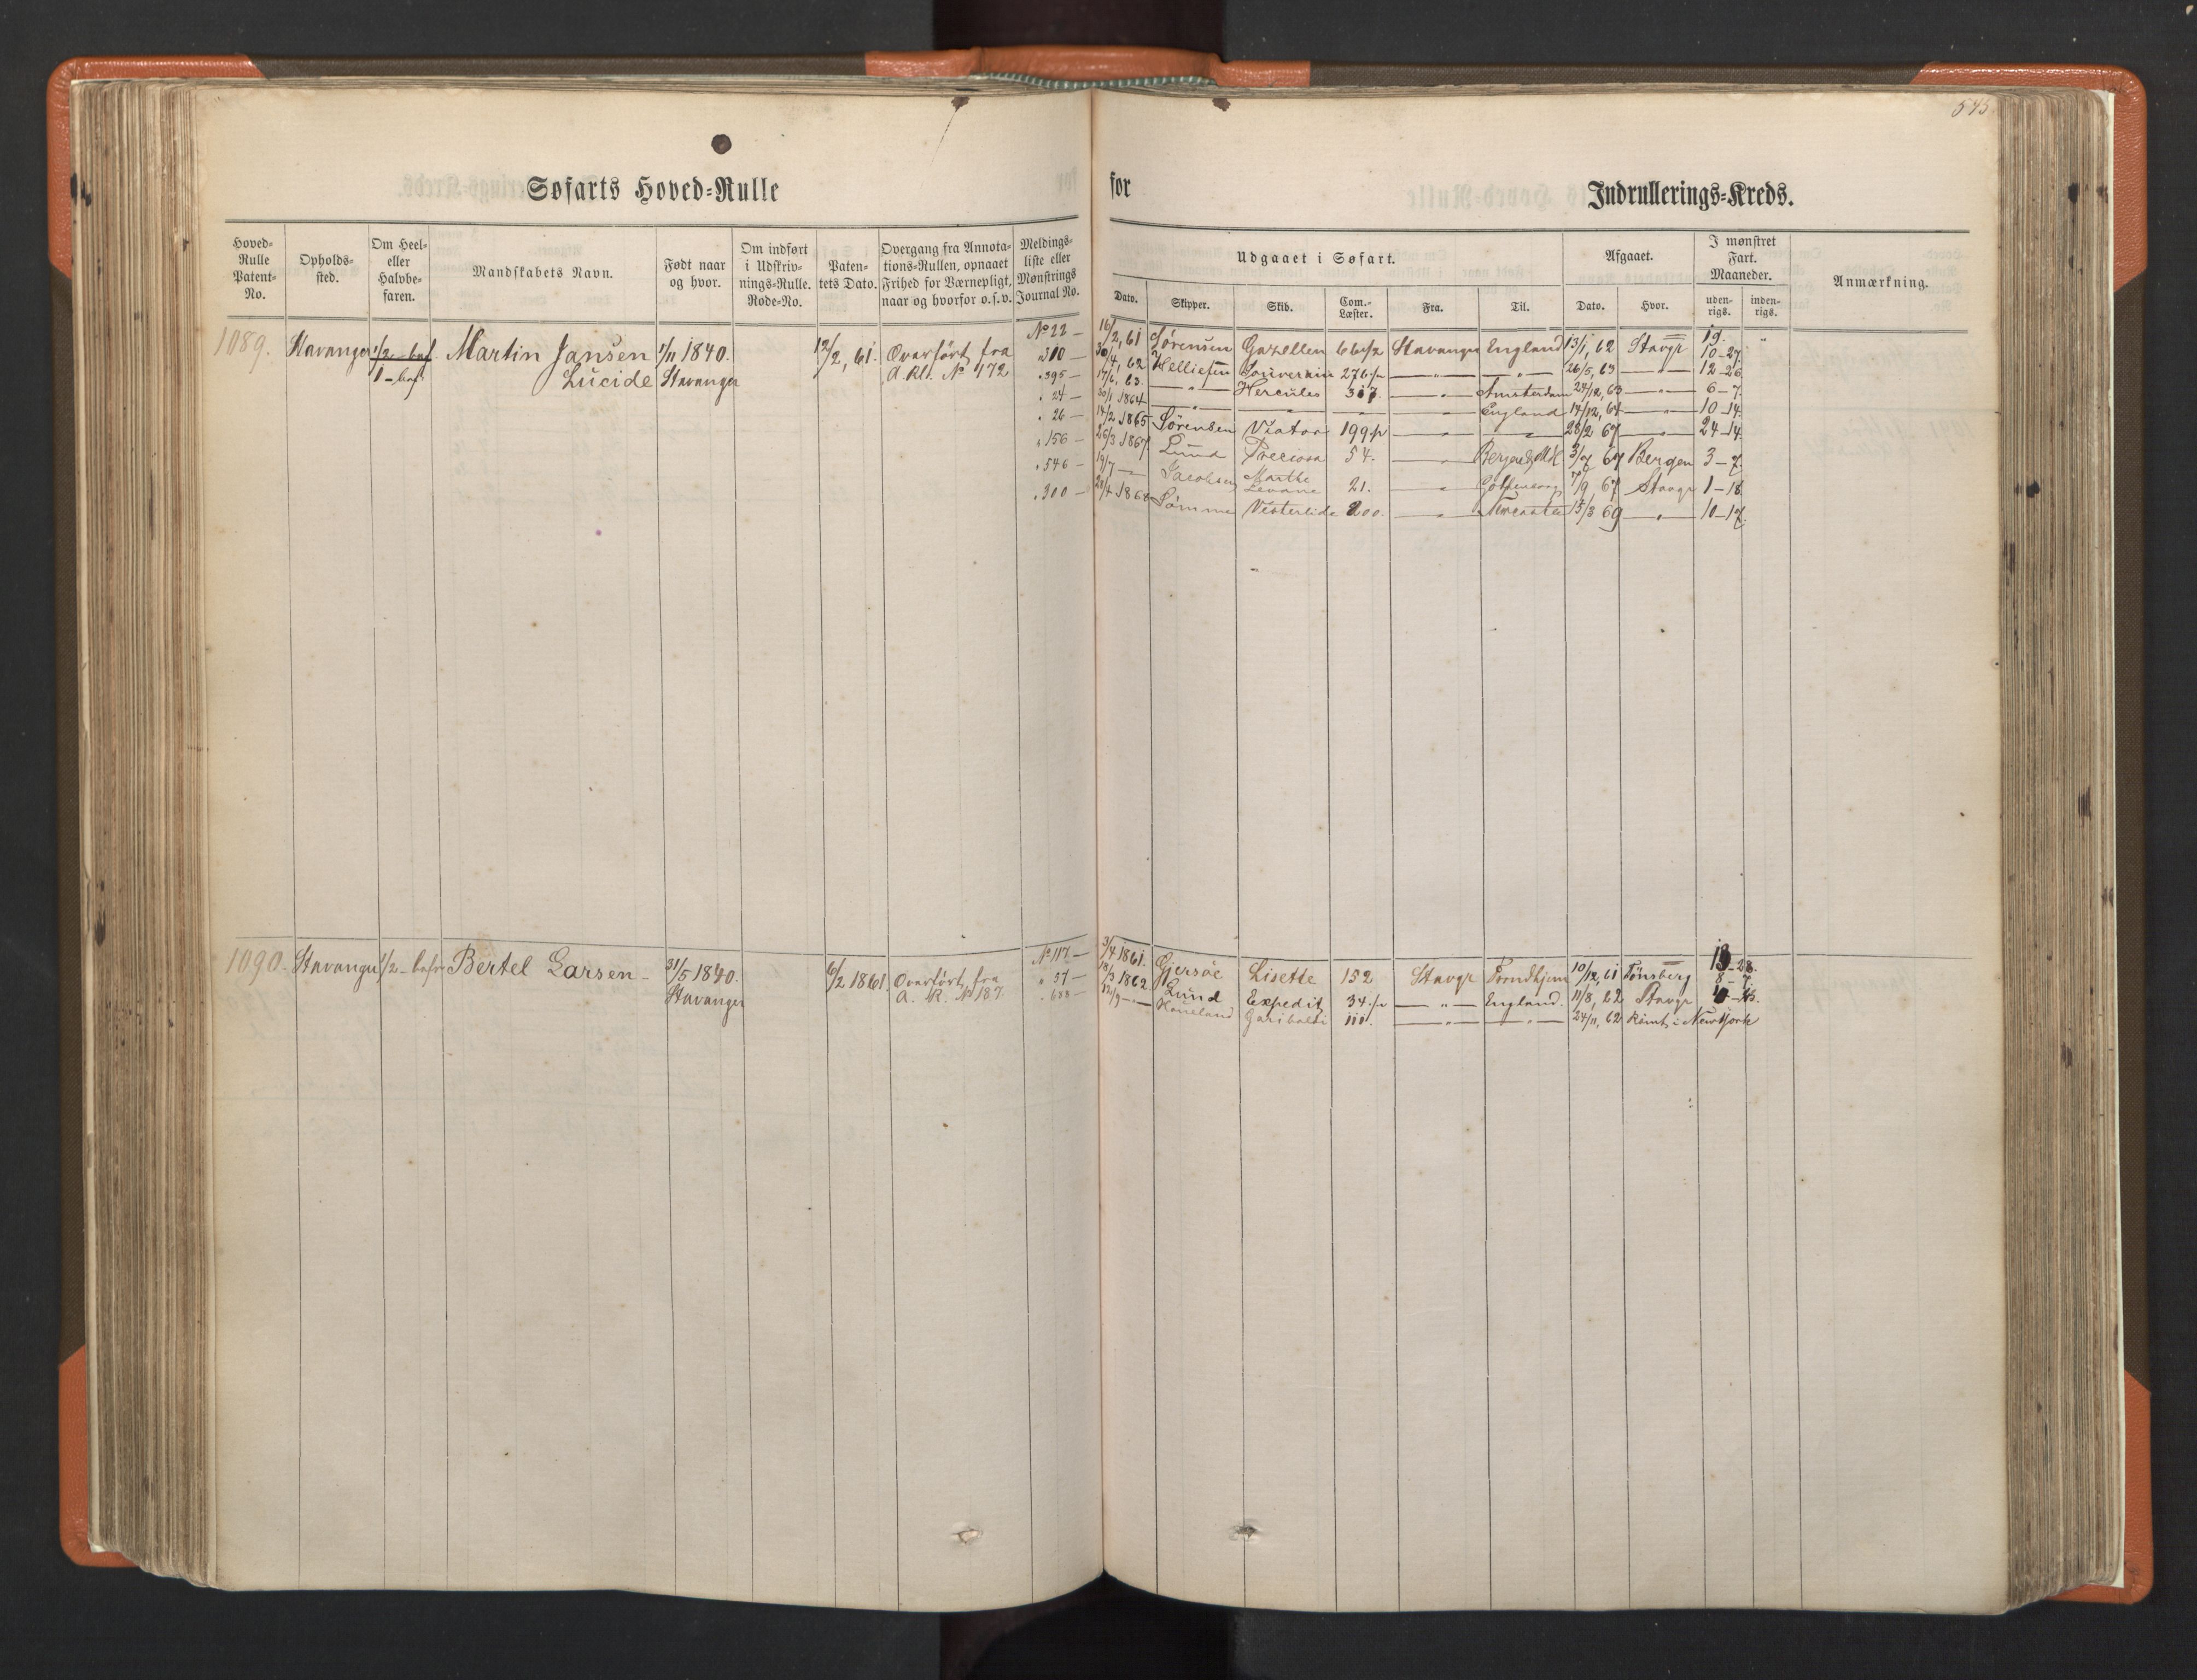 545
Søfarts Hoved=Rulle for Indrullerings=Kreds.
Hoved= Rulle Patent= No.
Opholds= sted.
Om Heel= eller Halvbe= faren.
Mandskabets Navn.
Født naar og hvor.
Om indført i Udskriv= nings=Rulle. Rode=No.
Paten= tets Dato.
Overgang fra Annota= tions=Rullen, opnaaet Frihed for Værnepligt, naar og hvorfor o.s.v.
Meldings= liste eller Mønstrings Journal No.
Udgaaet i Søfart.
Dato. Skipper. Skib. Com.= Læster. Fra. Til.
Afgaaet.
Dato. Hvor.
I mønstret Fart. Maaneder.
uden= rigs. inden= rigs.
Anmærkning.
1089. Stavanger 1/2 - baf. Martin Jansen 1/11 1840. 12/2, 61. Overført fra No 22 — 16/2, 61 Sørensen Gazellen 66 1/2 Stavanger England 13/1, 62 Stavgr 19. "
1 - baf Lucide Stavanger A. Rl. No 172 " 310 — 30/4, 62 Helliesen Souverain 276 1/2 — " — — " — 26/5, 63 — " — 12-26
" 395 — 17/6, 63. — " — Hercules 317. — " — Amsterdam 24/12, 63 — " — 6-7.
" 24 — 30/1 1864 — " — — " — — " — — " — England 14/12, 64 — " — 10-14.
" 26 — 14/2 1865 Sørensen Viator 199 1/2 — " — — " — 28/2 67 — " — 24-14.
" 156 — 26/3 1867. Lund Preciosa 54. — " — 3/7 67 Bergen 3-7.
" 546 — 19/7 — " — Jacobsen Marthe 21. — " — 7/9, 67 Stavgr 1-18.
" 300 — 28/4 1868 Sømme Vesterlide 200. — " — 15/3 69 — " — 10-17.
1090. Stavanger 1/2 - bafr Bertel Larsen — 31/5 1840. 6/2 1861. Overført fra No 117 — 3/4 1861. Gjersøe Lisette 152 Stavgr Trondhjem 10/12, 61 Tønsberg
Stavanger A. R. No 187. " 57 — 18/3 1862. Lund Expedit 34 1/2 — " — England. 11/8, 62 Stavgr
" 688 — 12/9 — " — Haneland Garibaldi 111. — " — — " — 24/11, 62 Rømt i New York